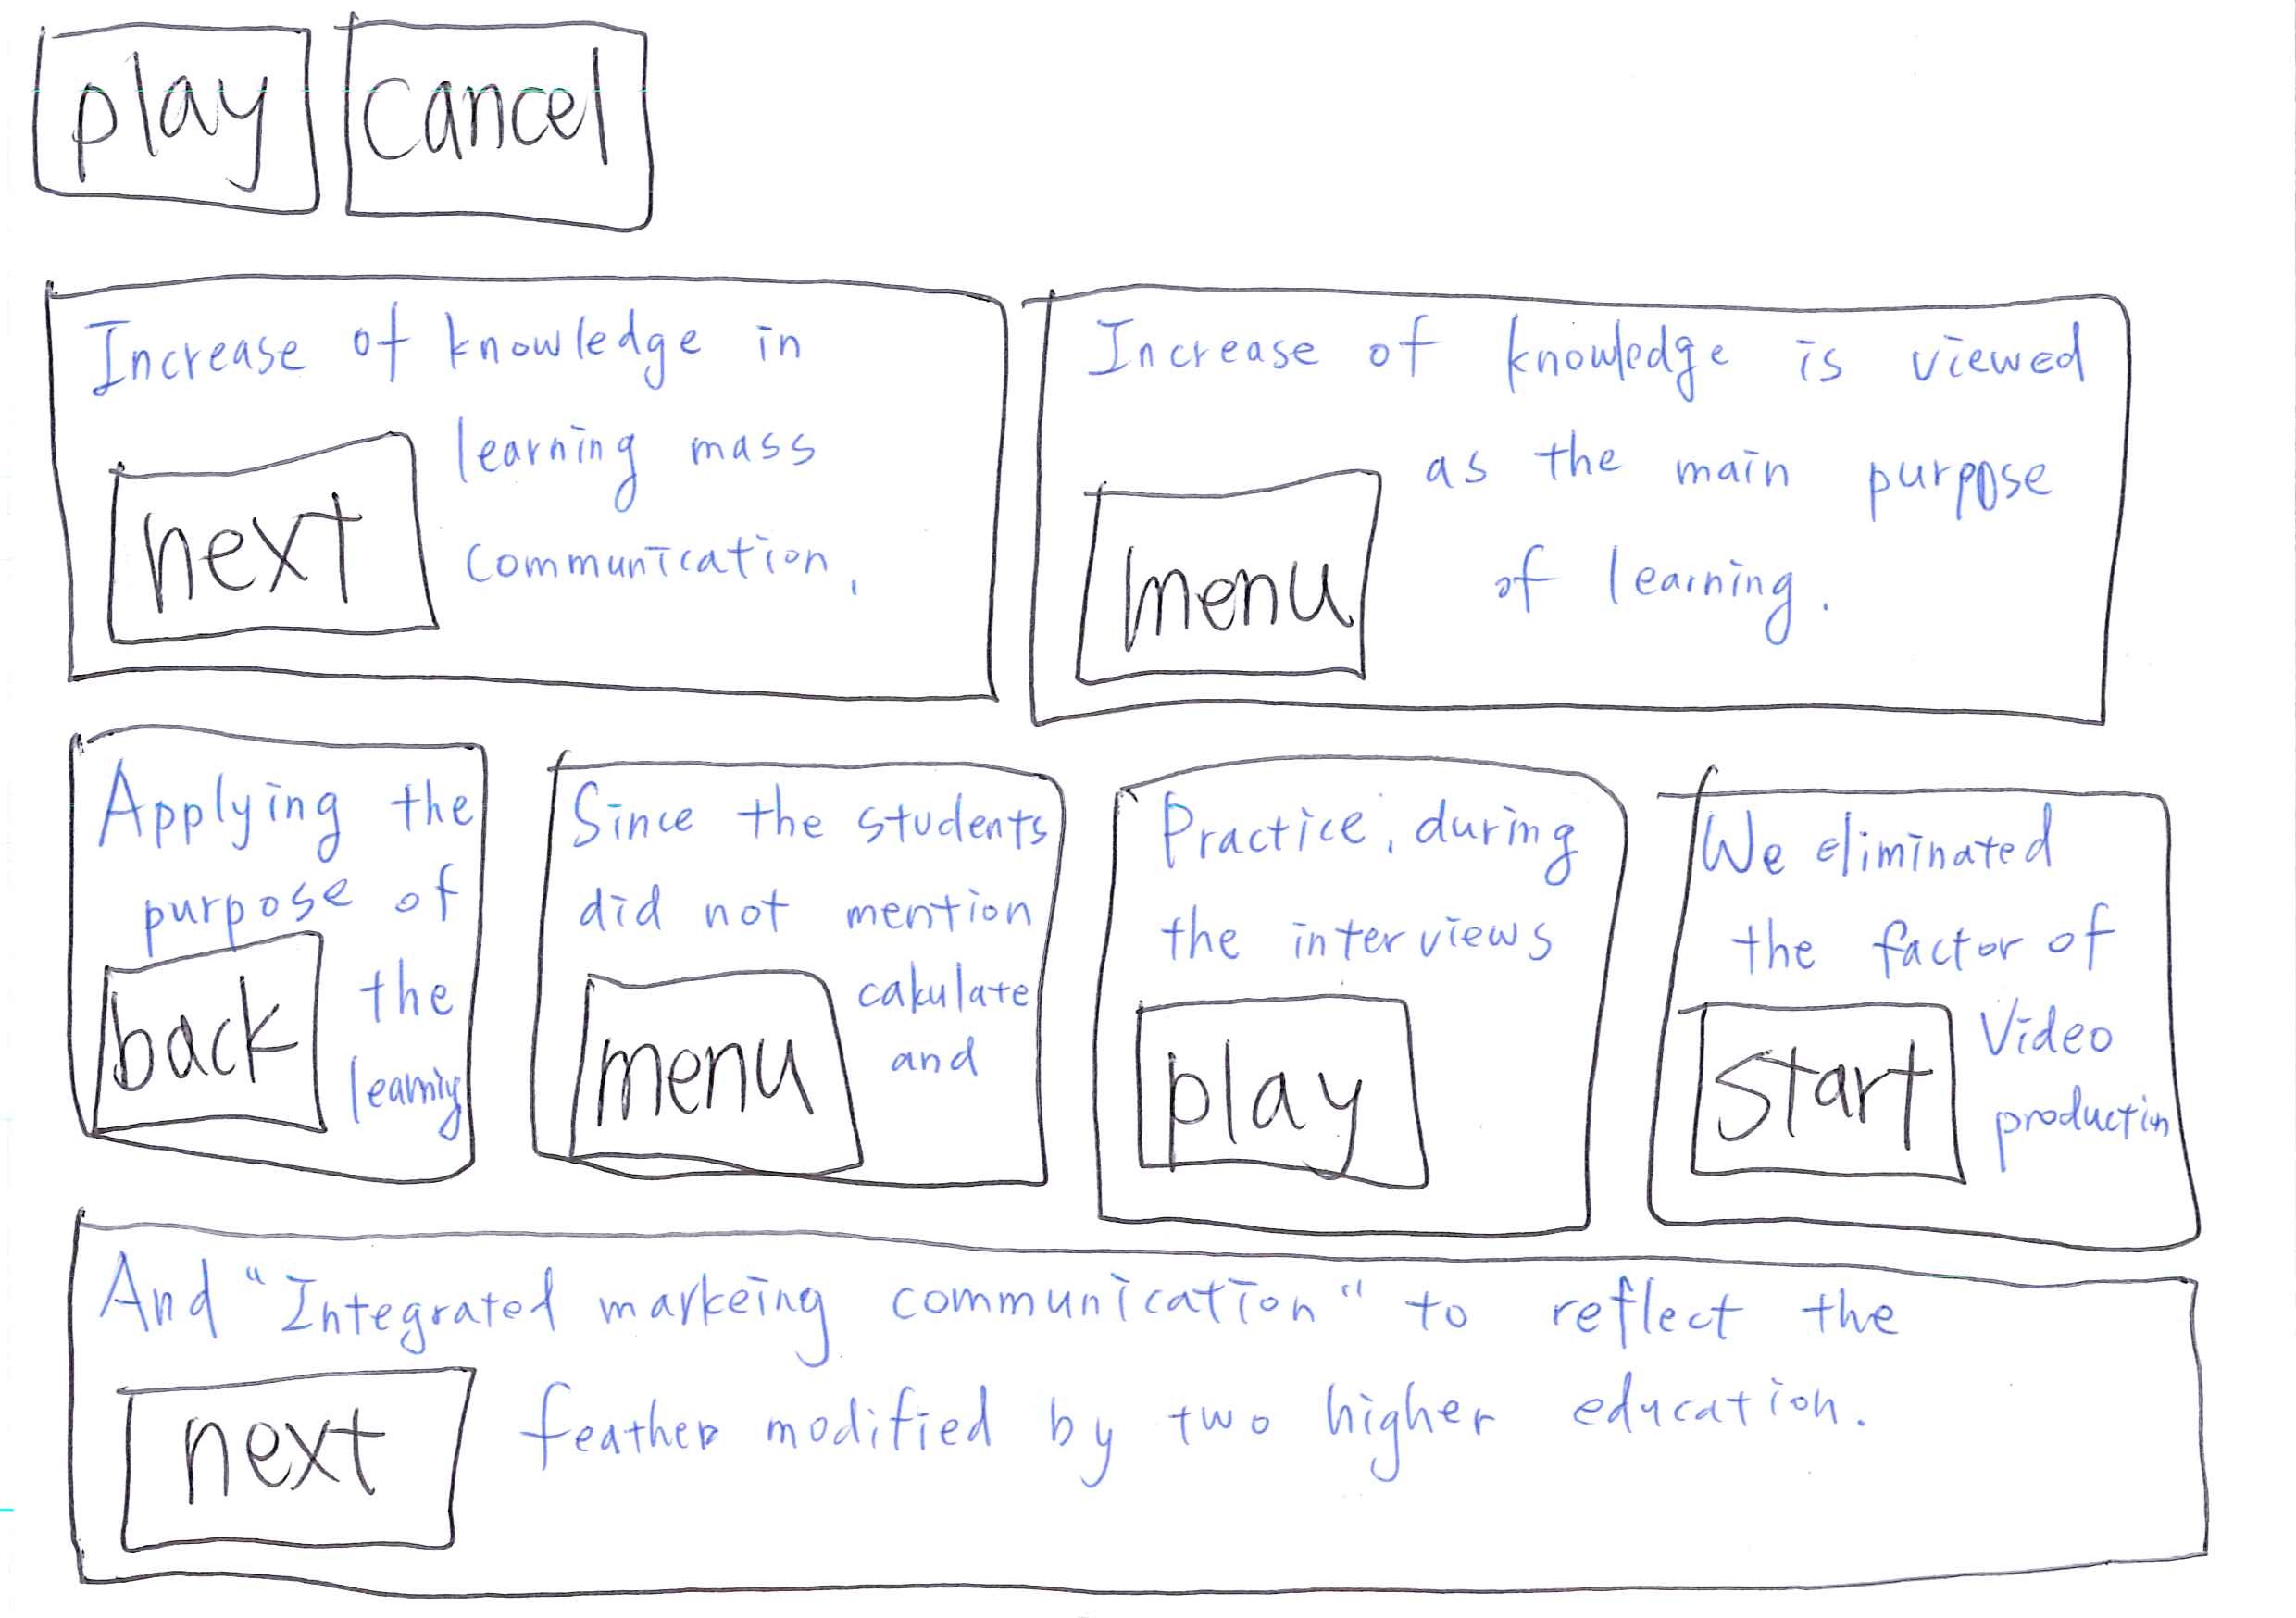 play cancel
Increase of knowledge in
learning mass
communication,
next
Increase of knowledge is viewed
as the main purpose
of learning.
menu
Applying the
purpose of
the
learniy
back
Since the students
did not mention
cakulate
and
menu
Practice, during
the interviews
play
We eliminated
the factor of
Video
productin
start
And "Integrated markeing communication" to reflect the
feather modified by two higher education.
next